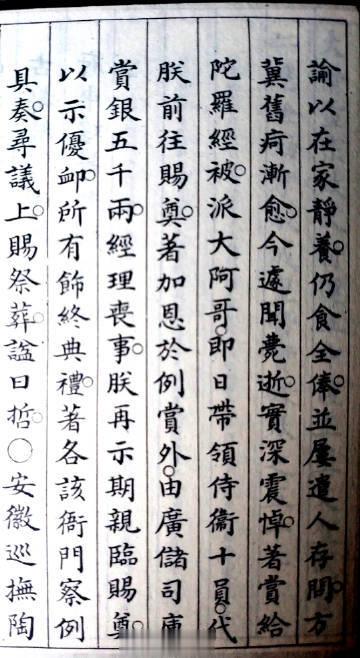 諭以在家靜養○仍食全俸○並屢遣人存問○方
冀舊疴漸愈○今遽聞薨逝○實深震悼○著賞給
陀羅經被○派大阿哥○即日帶領侍衞十員○代
朕前往賜奠○著加恩於例賞外○由廣儲司庫
賞銀五千兩○經理喪事○朕再示期親臨賜奠○
以示優卹○所有飾終典禮○著各該衙門察例
具奏○尋議○上○賜祭葬○諡曰哲○〇安徽巡撫陶